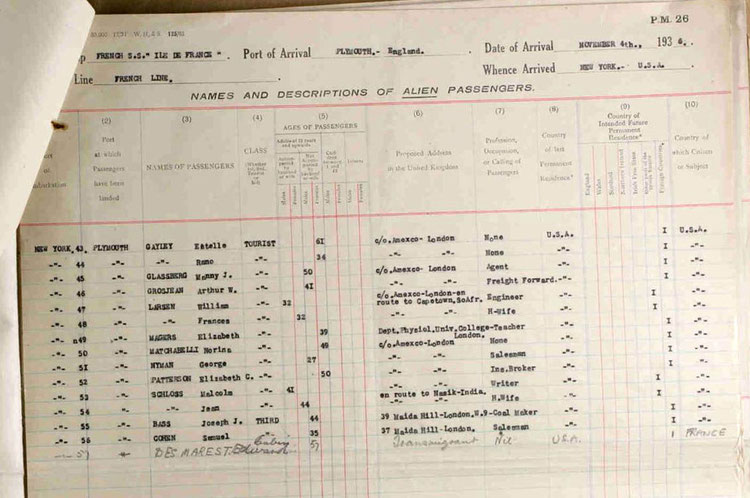 P.M. 26
FRENCH S.S." ILE DE FRANCE". Port of Arrival PLYMOUTH.- England. Date of Arrival NOVEMBER 4th., 1936.
Line FRENCH LINE. Whence Arrived NEW YORK.- U.S.A.
NAMES AND DESCRIPTIONS OF ALIEN PASSENGERS.
(2) (3) (4) (5) (6) (7) (8) (9) (10)
Port at which Passengers have been landed
NAMES OF PASSENGERS
CLASS
AGES OF PASSENGERS
Proposed Address in the United Kingdom
Profession, Occupation, or Calling of Passengers
Country of last Permanent Residence*
Country of Intended Future Permanent Residence*
England Wales Scotland
Country of which Citizen or Subject
NEW YORK, 43. PLYMOUTH GAYLEY Estelle TOURIST 61 c/o.Amexco- London None U.S.A. I U.S.A.
-"- 44 -"- -"- Reno -"- 34 -"- -"- None -"- I -"-
-"- 45 -"- GLASSBERG Manny J. -"- 50 c/o.Amexco- London Agent -"- I -"-
-"- 46 -"- GROSJEAN Arthur W. -"- 41 -"- -"- Freight Forward.-"- I -"-
-"- 47 -"- LARSEN William -"- 32 c/o.Amexco-London-en route to Capetown.SoAfr. Engineer -"- I -"-
-"- 48 -"- -"- Frances -"- 32 -"- -"- H-Wife -"- I -"-
-"- n49 -"- MAGERS Elizabeth -"- 39 Dept.Physiol.Univ.College-London. Teacher -"- I -"-
-"- 50 -"- MATCHABELLI Norina -"- 49 c/o.Amexco-London None -"- I -"-
-"- 51 -"- HYMAN George -"- 27 -"- -"- Salesman -"- I -"-
-"- 52 -"- PATTERSON Elizabeth C. -"- 50 -"- -"- Ins.Broker -"- I -"-
-"- 53 -"- SCHLOSS Malcolm -"- 41 en route to Nasik-India. Writer -"- I -"-
-"- 54 -"- -"- Jean -"- 44 -"- -"- H.Wife -"- I -"-
-"- 55 -"- BASS Joseph J. THIRD 44 39 Maida Hill-London.W.9-Coal Maker -"- I -"-
-"- 56 -"- COHEN Samuel -"- 35 37 Maida Hill-London. Salesman -"- I -"-
-"- 57 -"- DES MAREST. Edward 51 Transmigrant Nil U.S.A. I FRANCE